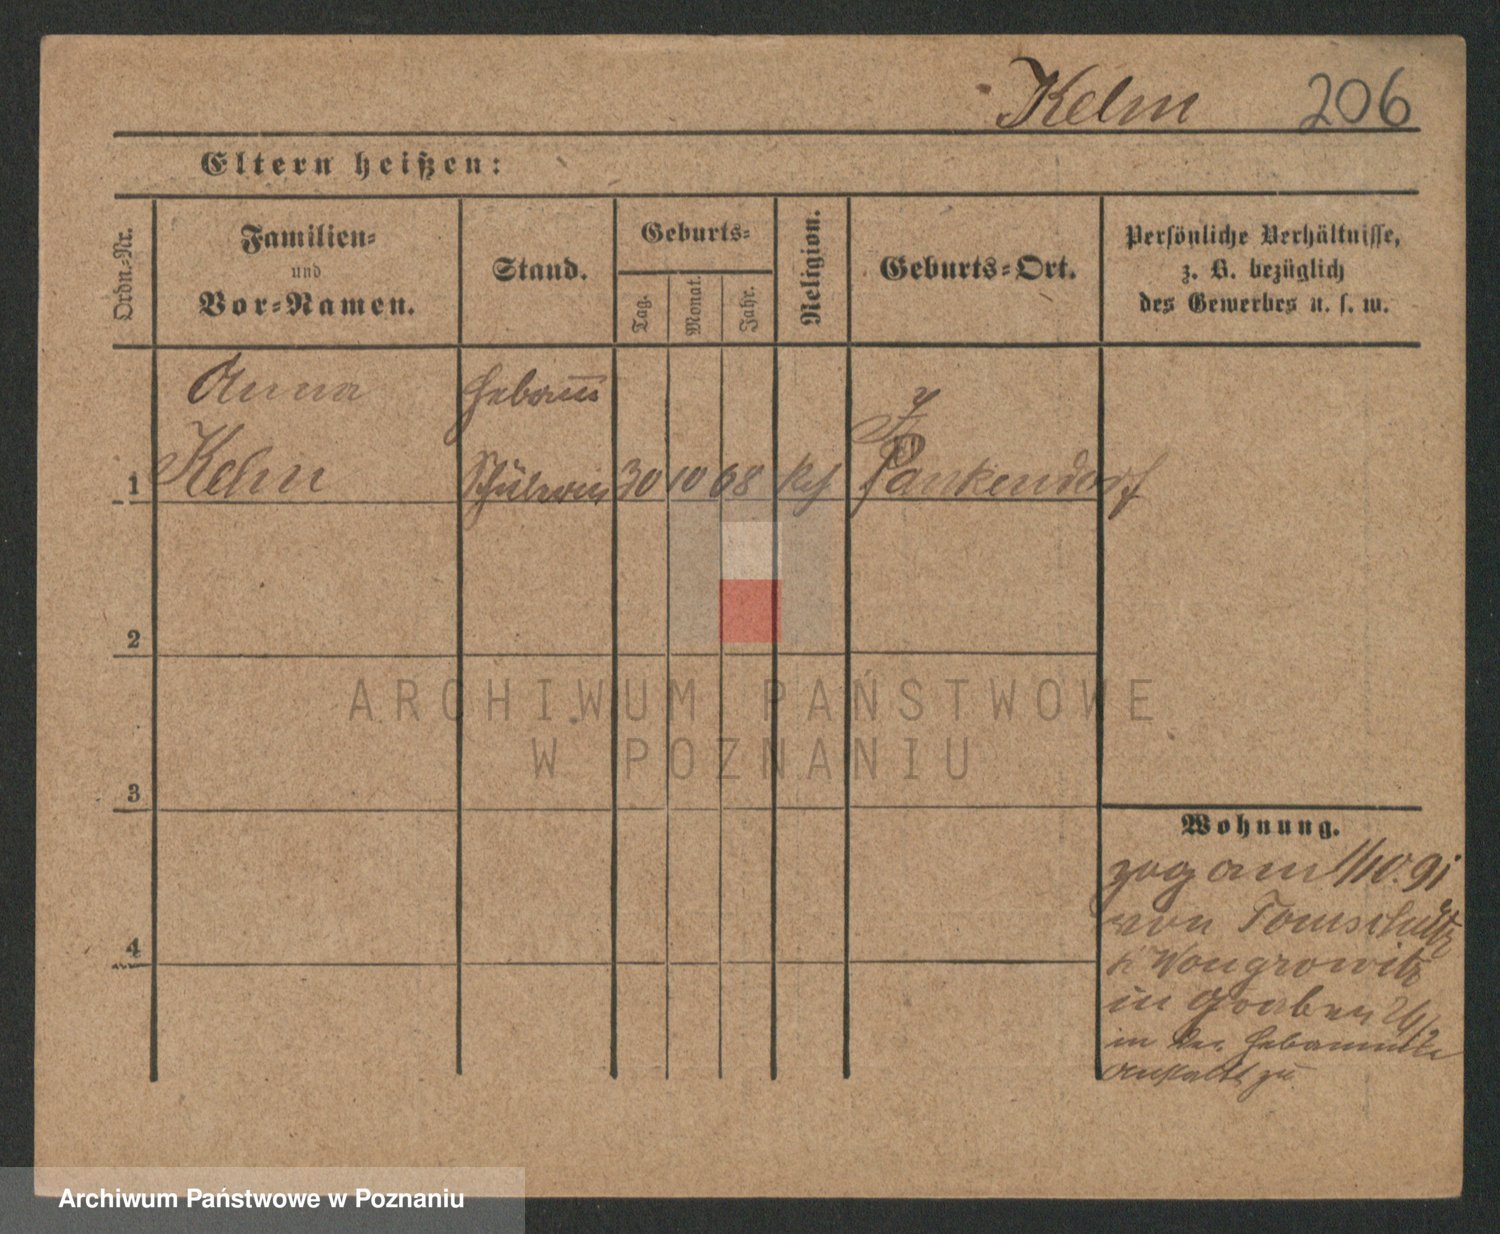 Kelm 206
Eltern heißen:
Ordn.-Nr.
Familien-
und
Vor-Namen.
Stand.
Geburts-
Tag.
Monat.
Jahr.
Religion.
Geburts-Ort.
Persönliche Verhältnisse,
z. B. bezüglich
des Gewerbes u. s. w.
Anna
1 Kelm 30 10 68 Pankendorf
2
3
4
Wohnung.
zog am 1/10. 91
von
Wongrowitz
in Graben
in der
anstalt zu
ARCHIWUM PAŃSTWOWE
W POZNANIU
Archiwum Państwowe w Poznaniu